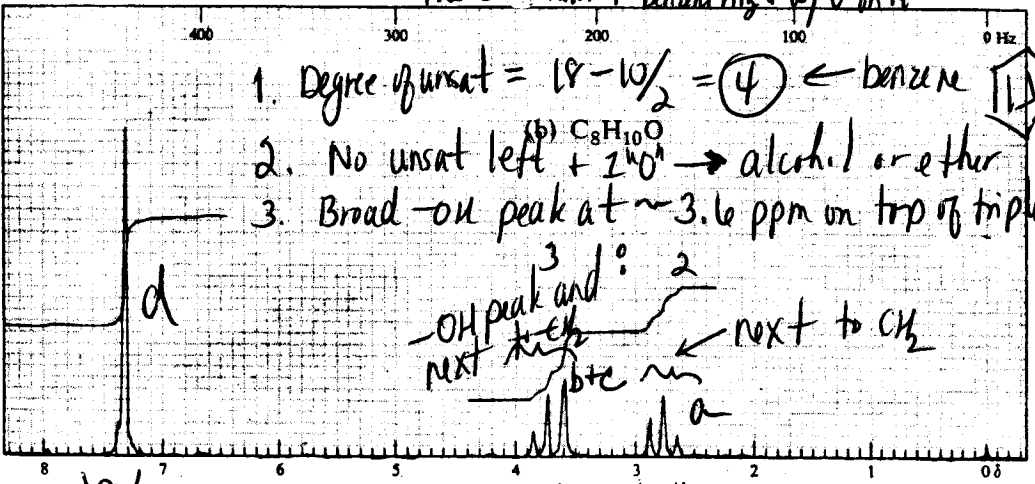 400 300 200 100 0 Hz
1. Degree of unsat = 18-10/2 = 4 ← benzene
(b) C₈H₁₀O
2. No unsat left + 1 "O" → alcohol or ether
3. Broad -OH peak at ~3.6 ppm on top of
3 : 2
-OH peak and
next to CH₂
next to CH₂
d
b+c
a
8 7 6 5 4 3 2 1 0 δ